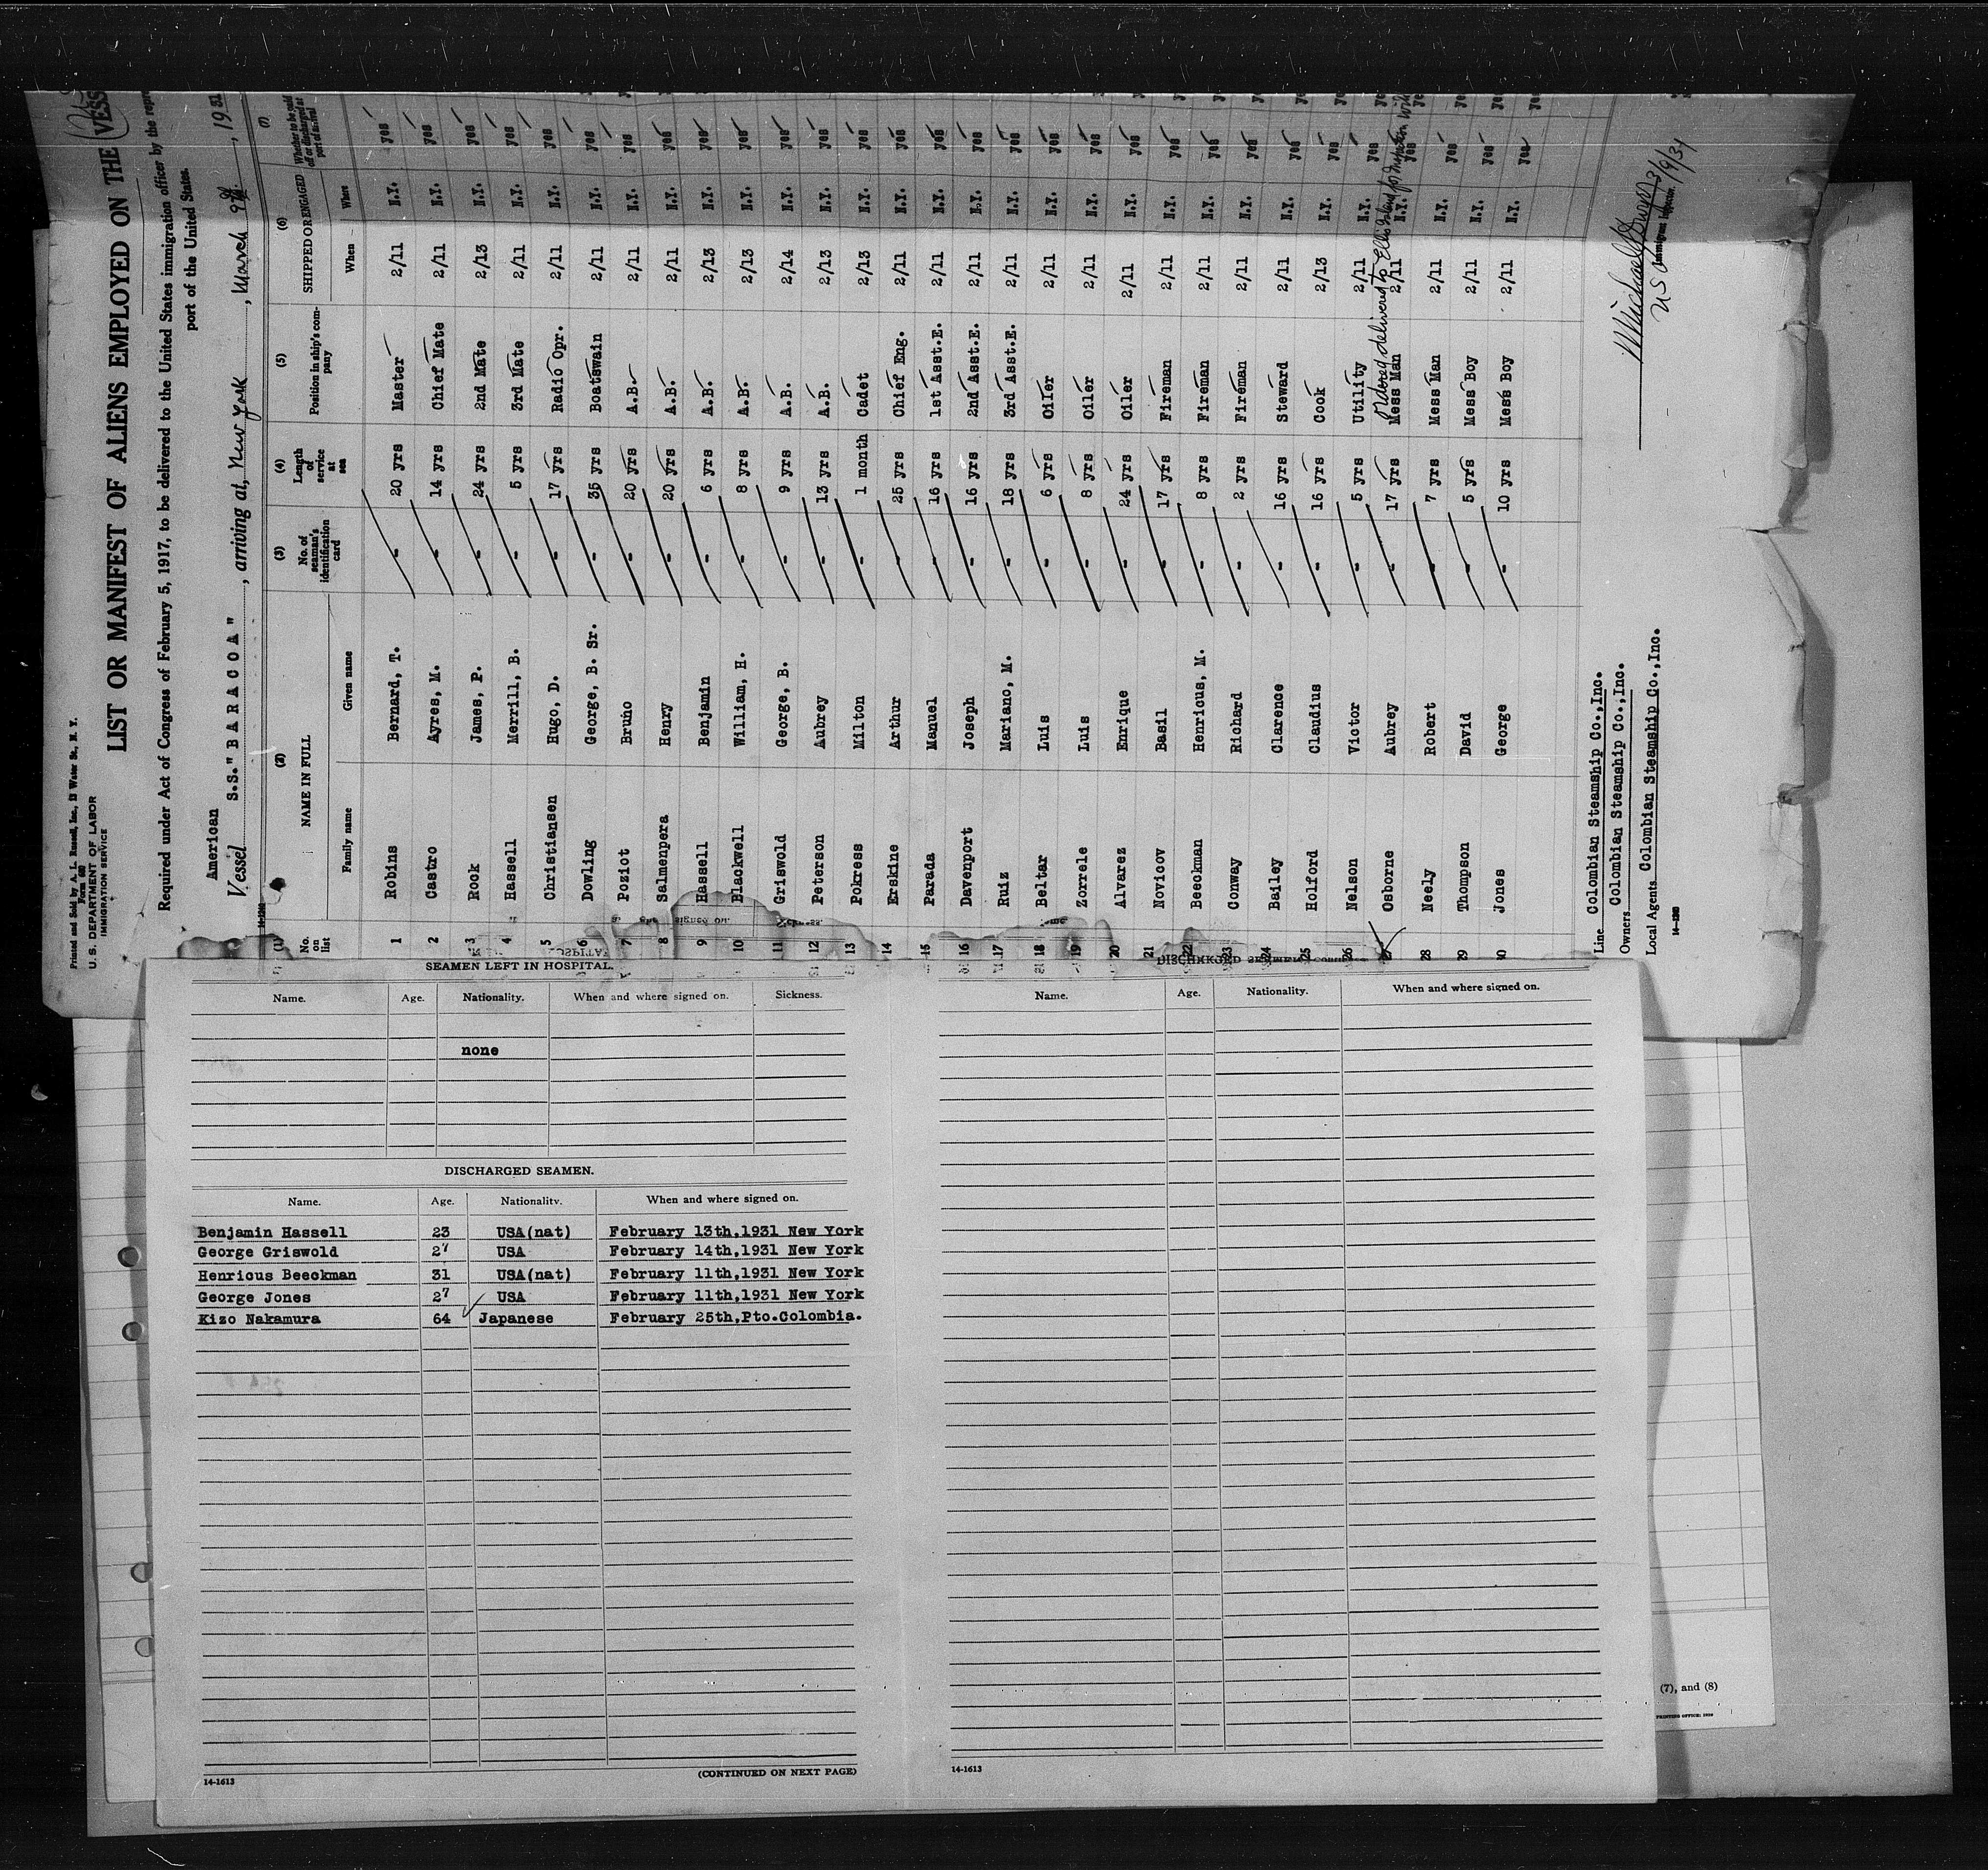 Printed and Sold by A. L. Russell, Inc., 12 Water St., N. Y.
Form 680
U. S. DEPARTMENT OF LABOR
IMMIGRATION SERVICE
LIST OR MANIFEST OF ALIENS EMPLOYED ON THE VESS
Required under Act of Congress of February 5, 1917, to be delivered to the United States immigration officer by the repre
port of the United States.
American
Vessel S.S."BARACOA", arriving at, New York, March 9th, 1931
(1) (2) (3) (4) (5) (6) (7)
No. on list NAME IN FULL No. of seaman's identification card Length of service at sea Position in ship's company SHIPPED OR ENGAGED Whether to be paid off or discharged at port of arrival
Family name Given name When Where
1 Robins Bernard, T. - 20 yrs Master 2/11 N.Y. yes
2 Castro Ayres, M. - 14 yrs Chief Mate 2/11 N.Y. yes
3 Rock James, P. - 24 yrs 2nd Mate 2/13 N.Y. yes
4 Hassell Merrill, B. - 5 yrs 3rd Mate 2/11 N.Y. yes
5 Christiansen Hugo, D. - 17 yrs Radio Opr. 2/11 N.Y. yes
6 Dowling George, B. Sr. - 35 yrs Boatswain 2/11 N.Y. yes
7 Poziot Bruno - 20 yrs A.B. 2/11 N.Y. yes
8 Salmenpera Henry - 20 yrs A.B. 2/11 N.Y. yes
9 Hassell Benjamin - 6 yrs A.B. 2/13 N.Y. yes
10 Blackwell William, H. - 8 yrs A.B. 2/13 N.Y. yes
11 Griswold George, B. - 9 yrs A.B. 2/14 N.Y. yes
12 Peterson Aubrey - 13 yrs A.B. 2/13 N.Y. yes
13 Pokress Milton - 1 month Cadet 2/13 N.Y. yes
14 Erskine Arthur - 25 yrs Chief Eng. 2/11 N.Y. yes
15 Parada Manuel - 16 yrs 1st Asst.E. 2/11 N.Y. yes
16 Davenport Joseph - 16 yrs 2nd Asst.E. 2/11 N.Y. yes
17 Ruiz Mariano, M. - 18 yrs 3rd Asst.E. 2/11 N.Y. yes
18 Beltar Luis - 6 yrs Oiler 2/11 N.Y. yes
19 Zorrele Luis - 8 yrs Oiler 2/11 N.Y. yes
20 Alvarez Enrique - 24 yrs Oiler 2/11 N.Y. yes
21 Novicov Basil - 17 yrs Fireman 2/11 N.Y. yes
22 Beeckman Henricus, M. - 8 yrs Fireman 2/11 N.Y. yes
23 Conway Richard - 2 yrs Fireman 2/11 N.Y. yes
24 Bailey Clarence - 16 yrs Steward 2/11 N.Y. yes
25 Holford Claudius - 16 yrs Cook 2/13 N.Y. yes
26 Nelson Victor - 5 yrs Utility 2/11 N.Y. yes
Ordered delivered to Ellis Island for inspection
27 Osborne Aubrey - 17 yrs Mess Man 2/11 N.Y. yes
28 Neely Robert - 7 yrs Mess Man 2/11 N.Y. yes
29 Thompson David - 5 yrs Mess Boy 2/11 N.Y. yes
30 Jones George - 10 yrs Mess Boy 2/11 N.Y. yes
Line Colombian Steamship Co.,Inc.
Owners Colombian Steamship Co.,Inc.
Local Agents Colombian Steamship Co.,Inc.
14-1240
Michael 3/9/31
Immigrant Inspector.
SEAMEN LEFT IN HOSPITAL.
Name. Age. Nationality. When and where signed on. Sickness.
none
DISCHARGED SEAMEN.
Name. Age. Nationality. When and where signed on.
Benjamin Hassell 23 USA(nat) February 13th,1931 New York
George Griswold 27 USA February 14th,1931 New York
Henricus Beeckman 31 USA(nat) February 11th,1931 New York
George Jones 27 USA February 11th,1931 New York
Kizo Nakamura 64 Japanese February 25th,Pto.Colombia.
14-1613 (CONTINUED ON NEXT PAGE)
DISCHARGED SEAMEN
Name. Age. Nationality. When and where signed on.
14-1613
(7), and (8)